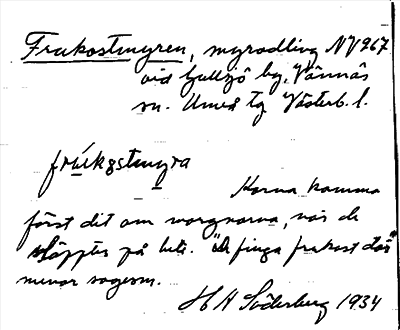 Frukostmyren, myrodling NV967
vid Gullsjö by, Vännäs
sn. Umeå tg Västerb. l.
frúkostmyra
Korna komma
först dit om morgnarna, när de
släpptes på bete. "de finga frukost där"
menar sagesm.
H H Söderberg 1934